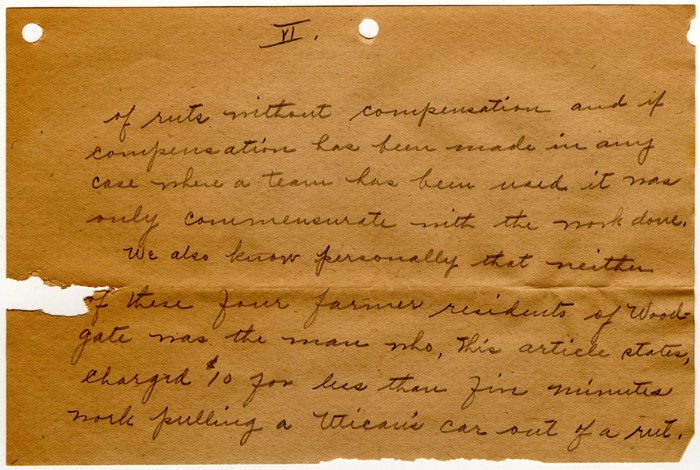 VI.
of ruts without compensation and if
compensation has been made in any
case where a team has been used it was
only commensurate with the work done.
We also know personally that neither
of these four farmer residents of Wood-
gate was the man who, this article states,
charged $10 for less than five minutes
work pulling a Utican's car out of a rut.